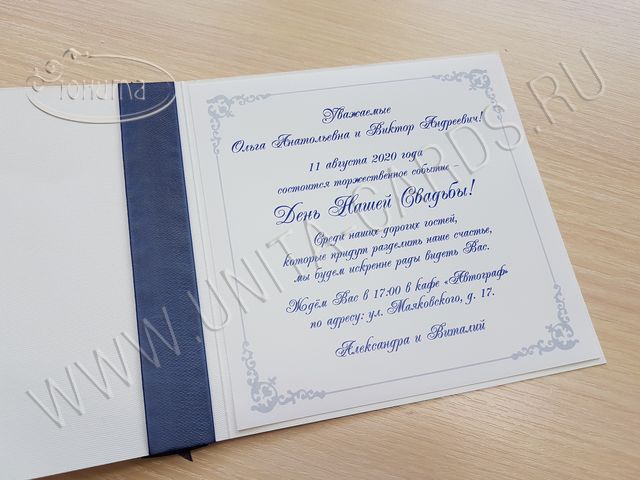 Юнита
Уважаемые
Ольга Анатольевна и Виктор Андреевич!
11 августа 2020 года
состоится торжественное событие –
День Нашей Свадьбы!
Среди наших дорогих гостей,
которые придут разделить наше счастье,
мы будем искренне рады видеть Вас.
Ждём Вас в 17:00 в кафе «Автограф»
по адресу: ул. Маяковского, д. 17.
Александра и Виталий
WWW.UNITA-CARDS.RU